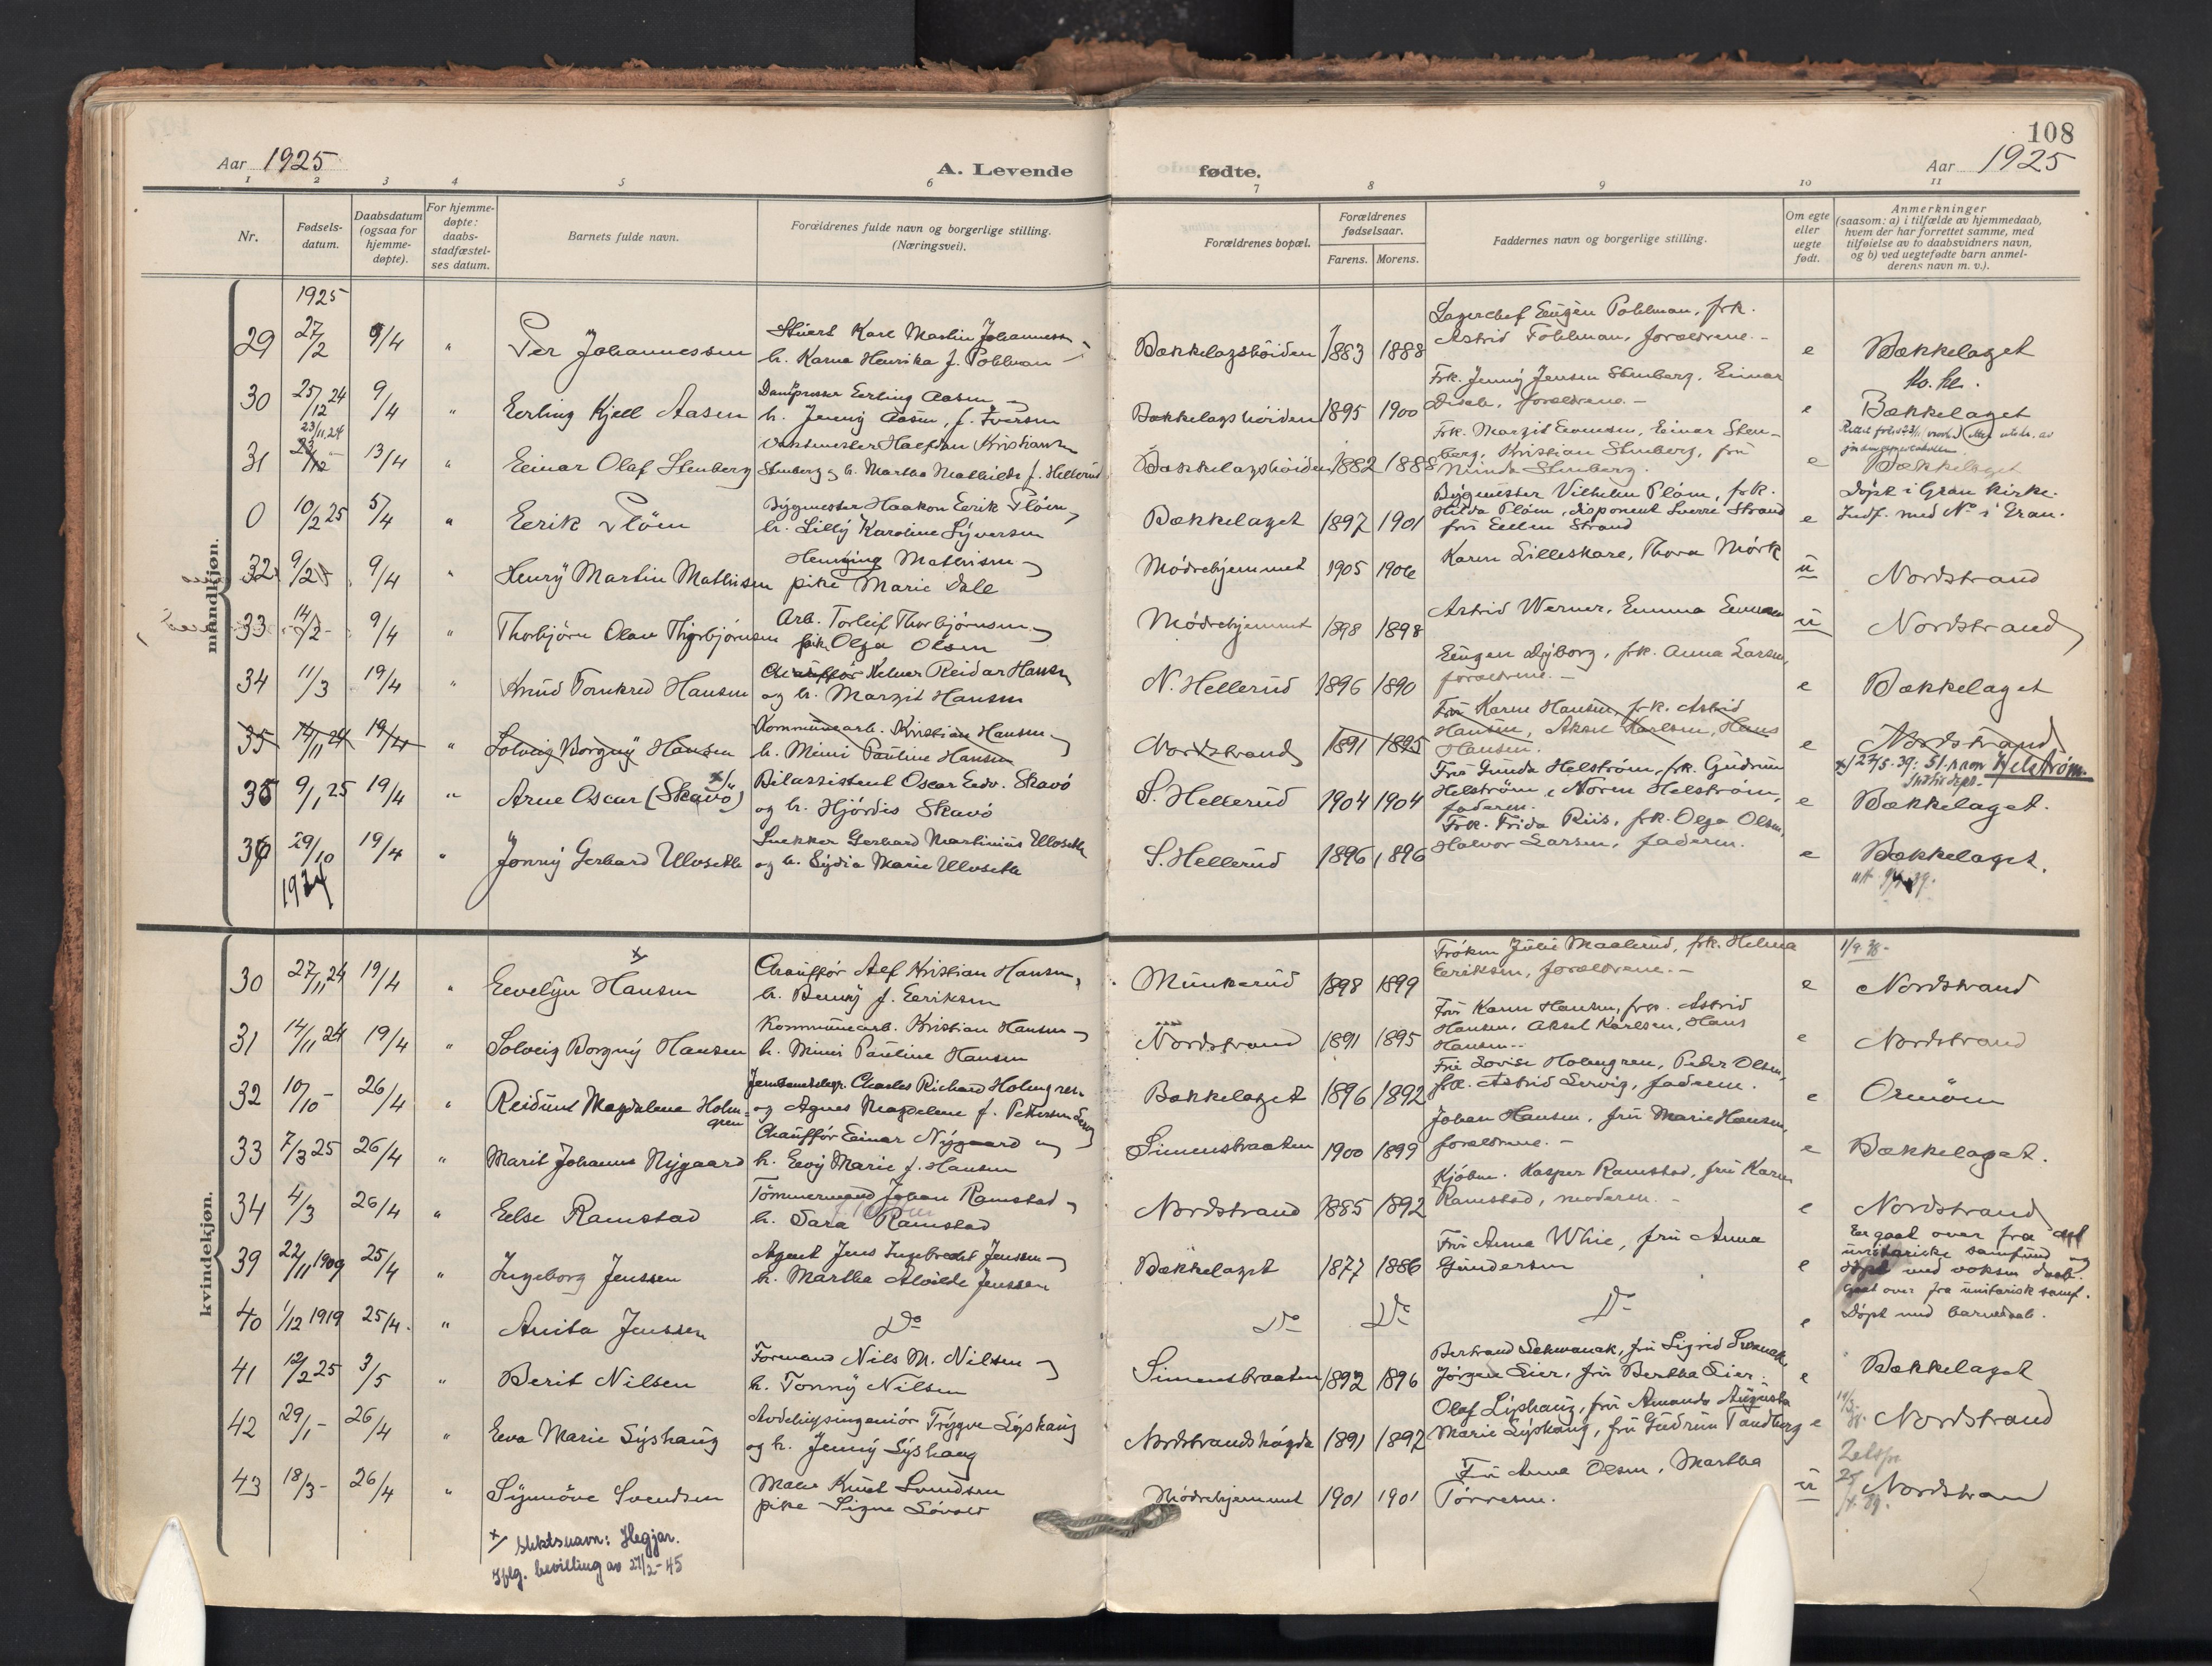 108
Aar 1925
A. Levende
fødte.
Aar 1925
1 2 3 4 5 6 7 8 9 10 11
Nr.
Fødsels-
datum.
Daabsdatum
(ogsaa for
hjemme-
døpte).
For hjemme-
døpte:
daabs-
stadfæstel-
ses datum.
Barnets fulde navn.
Forældrenes fulde navn og borgerlige stilling.
(Næringsvei).
Forældrenes bopæl.
Forældrenes
fødselsaar.
Farens. Morens.
Faddernes navn og borgerlige stilling.
Om egte
eller
uegte
født.
Anmerkninger
(saasom: a) i tilfælde av hjemmedaab,
hvem der har forrettet samme, med
tilføielse av to daabsvidners navn,
og b) ved uegtefødte barn anmel-
derens navn m. v.).
mandkjøn.
1925
29 27/2 9/4 " Per Johannessen
Stuert Karl Martin Johannessen
h. Karna Henrika f. Pohlman
Bækkelagshöiden 1883 1888
Lagerchef Eugen Pohlman, frk.
Astrid Pohlman, forældrene. -
e Bækkelaget
30 25/12 24 9/4 " Erling Kjell Aasen
Erling Aasen
h. Jenny Aasen, f. Iversen
Bækkelagshöiden 1895 1900
Frk. Jenny Jensen Stenberg, Einar
forældrene. -
e Bækkelaget
31 23/11.24 23/12 13/4 " Einar Olaf Stenberg
Vaktmester Halfdan Kristiansen
Stenberg og h. Martha Mathilde f. Hellerud
Bækkelagshöiden 1882 1888
Frk. Margit Evensen, Einar Sten-
berg, Kristian Stenberg, fru
Minda Stenberg.
e Bækkelaget
0 10/2 25 5/4 " Erik Plöm
Bygmester Haakon Erik Plöm
h. Lilly Karoline Syversen
Bækkelaget 1897 1901
Bygmester Vilhelm Plöm, frk.
Hilda Plöm, disponent Sverre Strand
fru Ellen Strand
e Döpt i Gran kirke.
Indf. med No i Gran.
32 9/2 25 9/4 " Henry Martin Mathisen
Henning Mathisen
pike Marie Dale
Mödrehjemmet 1905 1906
Karen Lilleskare, Thora Mörk
u Nordstrand
33 14/2 - 9/4 " Thorbjörn Olav Thorbjörnsen
Arb. Torleif Thorbjörnsen
pik. Olga Olsen
Mödrehjemmet 1898 1898
Astrid Werner, Emma Evensen
u Nordstrand
34 11/3 19/4 " Knud Tornkred Hansen
Chaufför Kelner Reidar Hansen
og h. Margit Hansen
N. Hellerud 1896 1890
Eugen Nyborg, frk. Anna Larsen,
forældrene. -
e Bækkelaget
35 14/11 24 19/4 " Solveig Borgny Hansen
Kommunearb. Kristian Hansen
h. Mimi Pauline Hansen
Nordstrand 1891 1895
Fru Karen Hansen, frk. Astrid
Hansen, Aksel Karlsen, Hans
Hansen.
e Nordstrand
35 9/1 25 19/4 " Arne Oscar (Skavö) x/
Bilassistent Oscar Edv. Skavö
og h. Hjördis Skavö
S. Hellerud 1904 1904
Fru Gunda Helström, frk. Gudrun
Helström, Noren Helström,
faderen.
x/ 27/5.39: Sl.navn Helström.
Justisdept.
e Bækkelaget.
36 29/10 1924 19/4 " Jonny Gerhard Ulvseth
Snekker Gerhard Martinius Ulvseth
og h. Lydia Marie Ulvseth
S. Hellerud 1896 1896
Frk. Frida Riis, frk. Olga Olsen,
Halvor Larsen, faderen.
e Bækkelaget.
kvindekjøn.
30 27/11 24 19/4 " Evelyn Hansen x/
Chaufför Alf Kristian Hansen,
h. Benny f. Eriksen
Munkerud 1898 1899
Fröken Julie Maalerud, frk. Helma
Eriksen, forældrene. -
e 1/9.38 -
Nordstrand
31 14/11 24 19/4 " Solveig Borgny Hansen
Kommunearb. Kristian Hansen
h. Mimi Pauline Hansen
Nordstrand 1891 1895
Fru Karen Hansen, frk. Astrid
Hansen, Aksel Karlsen, Hans
Hansen. -
e Nordstrand
32 10/10 - 26/4 " Reidunt Magdalene Holm-
gren
Charles Richard Holmgren
og Agnes Magdalene f. Pettersen
Bækkelaget 1896 1892
Fru Lovise Holmgren, Peder Olsen,
frk. Astrid Servig, faderen.
e Ormöen
33 7/3 25 26/4 " Marit Johanne Nygaard
Chaufför Einar Nygaard
h. Evy Marie f. Hansen
Simenstraaten 1900 1899
Johan Hansen, fru Marie Hansen,
forældrene. -
e Bækkelaget.
34 4/3 26/4 " Else Ramstad
Tömmermand Johan Ramstad
h. Sara Ramstad
Nordstrand 1885 1892
Kjöbm. Kasper Ramstad, fru Karen
Ramstad, moderen. -
e Nordstrand
39 22/11 1909 25/4 " Ingeborg Jenssen
Agent Jens Ingebredt Jenssen
h. Martha Alvilde Jenssen
Bækkelaget 1877 1886
Fru Anna Whie, fru Anna
Gundersen
e Er gaat over fra det
unitariske samfund og
döpt med voksen daab.
40 1/12 1919 25/4. " Anita Jenssen
Do Do Do Do
e Gaat over fra unitarisk samf.
Döpt med barnedaab.
41 12/2 25 3/5 " Berit Nilsen
Formand Nils M. Nilsen
h. Tonny Nilsen
Simenstraaten 1892 1896
Bertrand Schwanck, fru Sigrid Svanck,
Jörgen Lier, fru Bertha Lier.
e Bækkelaget
42 29/1 - 26/4 " Eva Marie Lyshaug
Avdelingsingeniör Trygve Lyshaug
og h. Jenny Lyshaug
Nordstrandshögda 1891 1897
Olaf Lyshaug, fru Amanda Augusta
Marie Lyshaug, fru Gudrun Tandberg
e Nordstrand
43 18/3 - 26/4 " Synnöve Svendsen
Maler Knut Svendsen
pike Signe Lövold
Mödrehjemmet 1901 1901
Fru Anna Olsen, Martha
Törresen.
u Nordstrand
x/ slektsnavn: Hegjar.
Iflg. bevilling av 27/2-45